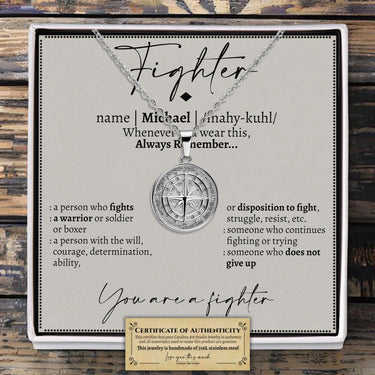 Fighter
name | Michael | /mahy-kuhl/
Whenever wear this,
Always Remember...
: a person who fights
: a warrior or soldier
or boxer
: a person with the will,
courage, determination,
ability,
or disposition to fight,
struggle, resist, etc.
: someone who continues
fighting or trying
: someone who does not
give up
You are a fighter
CERTIFICATE OF AUTHENTICITY
This certifies that your Catalina Art Studio jewelry is authentic
and all materials used to make this product are genuine.
This jewelry is handmade of 316L stainless steel
Love you this much